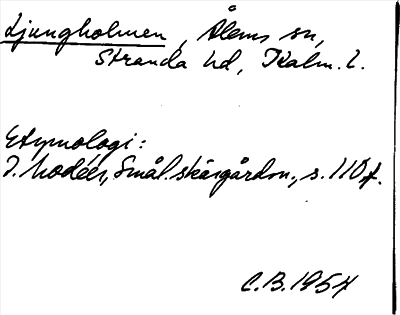 Ljungholmen, Ålems sn,
Stranda hd, Kalm. l.
Etymologi:
I. Modéer, Smål. skärgårdsn., s. 110 f.
C.B. 1954